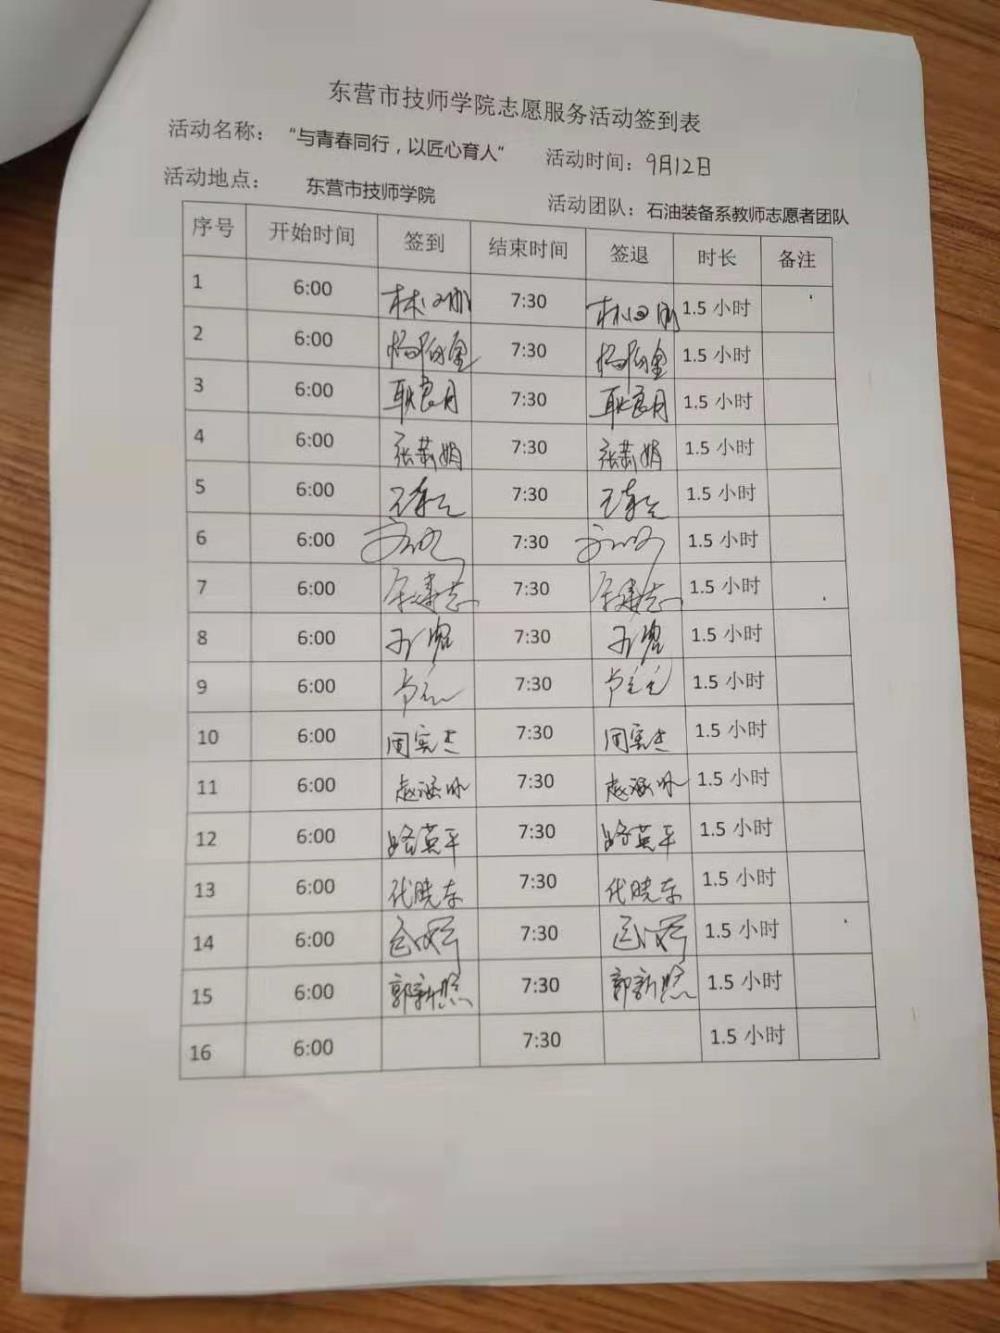 东营市技师学院志愿服务活动签到表
活动名称： “与青春同行，以匠心育人” 活动时间：9月12日
活动地点： 东营市技师学院 活动团队：石油装备系教师志愿者团队
序号 开始时间 签到 结束时间 签退 时长 备注
1 6:00 7:30 1.5 小时
2 6:00 7:30 1.5 小时
3 6:00 耿良月 7:30 耿良月 1.5 小时
4 6:00 张莉娟 7:30 张莉娟 1.5 小时
5 6:00 7:30 1.5 小时
6 6:00 7:30 1.5 小时
7 6:00 7:30 1.5 小时
8 6:00 7:30 1.5 小时
9 6:00 7:30 1.5 小时
10 6:00 周宪杰 7:30 周宪杰 1.5 小时
11 6:00 7:30 1.5 小时
12 6:00 路英平 7:30 路英平 1.5 小时
13 6:00 代晓东 7:30 代晓东 1.5 小时
14 6:00 7:30 1.5 小时
15 6:00 郭新照 7:30 郭新照 1.5 小时
16 6:00 7:30 1.5 小时